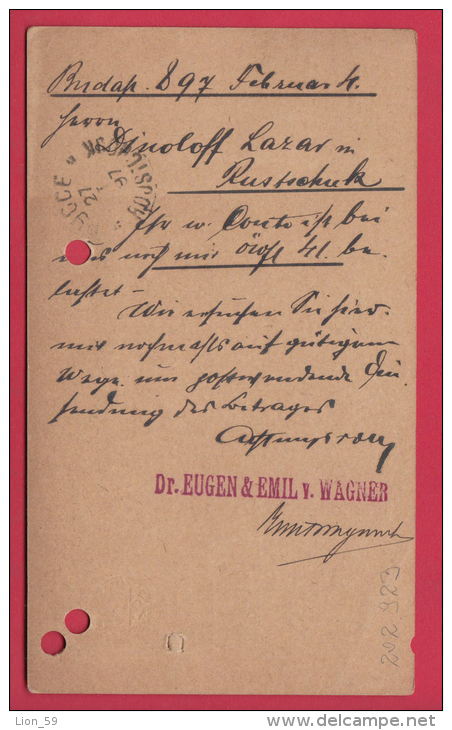 Budap. 897 Februar 4.
Herrn
Dinoloff Lazar in
Rustschuk
Ihr w. Conto ist bei
uns noch mit öwfl 41. be-
lastet –
Wir ersuchen Sie hier-
mit nochmals auf gütigem
Wege um postwendende Ein-
sendung des Betrages
Achtungsvoll
Dr. EUGEN & EMIL v. WAGNER
202 923
Lion_59
www.delcampe.net